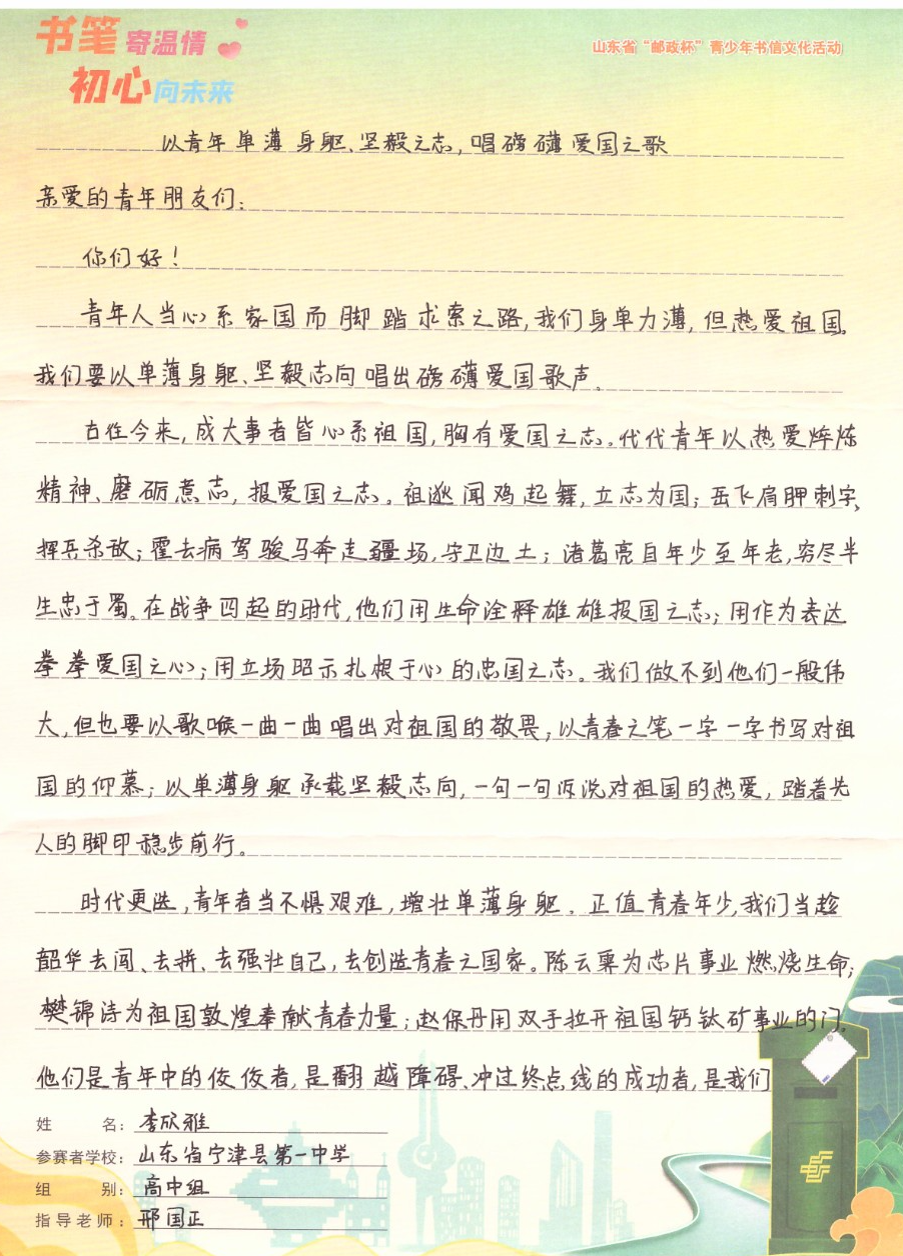 书笔寄温情
初心向未来
山东省“邮政杯”青少年书信文化活动
以青年单薄身躯、坚毅之志,唱磅礴爱国之歌
亲爱的青年朋友们:
你们好!
青年人当心系家国而脚踏求索之路,我们身单力薄,但热爱祖国,
我们要以单薄身躯、坚毅志向唱出磅礴爱国歌声。
古往今来,成大事者皆心系祖国,胸有爱国之志。代代青年以热爱焠炼
精神、磨砺意志,报爱国之志。祖逖闻鸡起舞,立志为国;岳飞肩胛刺字、
挥兵杀敌;霍去病驾骏马奔走疆场,守卫边土;诸葛亮自年少至年老,穷尽半
生忠于蜀。在战争四起的时代,他们用生命诠释雄雄报国之志;用作为表达
拳拳爱国之心;用立场昭示扎根于心的忠国之志。我们做不到他们一般伟
大,但也要以歌喉一曲一曲唱出对祖国的敬畏;以青春之笔一字一字书写对祖
国的仰慕;以单薄身躯承载坚毅志向,一句一句诉说对祖国的热爱,踏着先
人的脚印稳步前行。
时代更迭,青年者当不惧艰难,增壮单薄身躯。正值青春年少,我们当趁
韶华去闯、去拼、去强壮自己,去创造青春之国家。陈云霁为芯片事业燃烧生命;
樊锦诗为祖国敦煌奉献青春力量;赵保丹用双手拉开祖国钙钛矿事业的门。
他们是青年中的佼佼者,是翻越障碍、冲过终点线的成功者,是我们
姓名:李欣雅
参赛者学校:山东省宁津县第一中学
组别:高中组
指导老师:邢国正